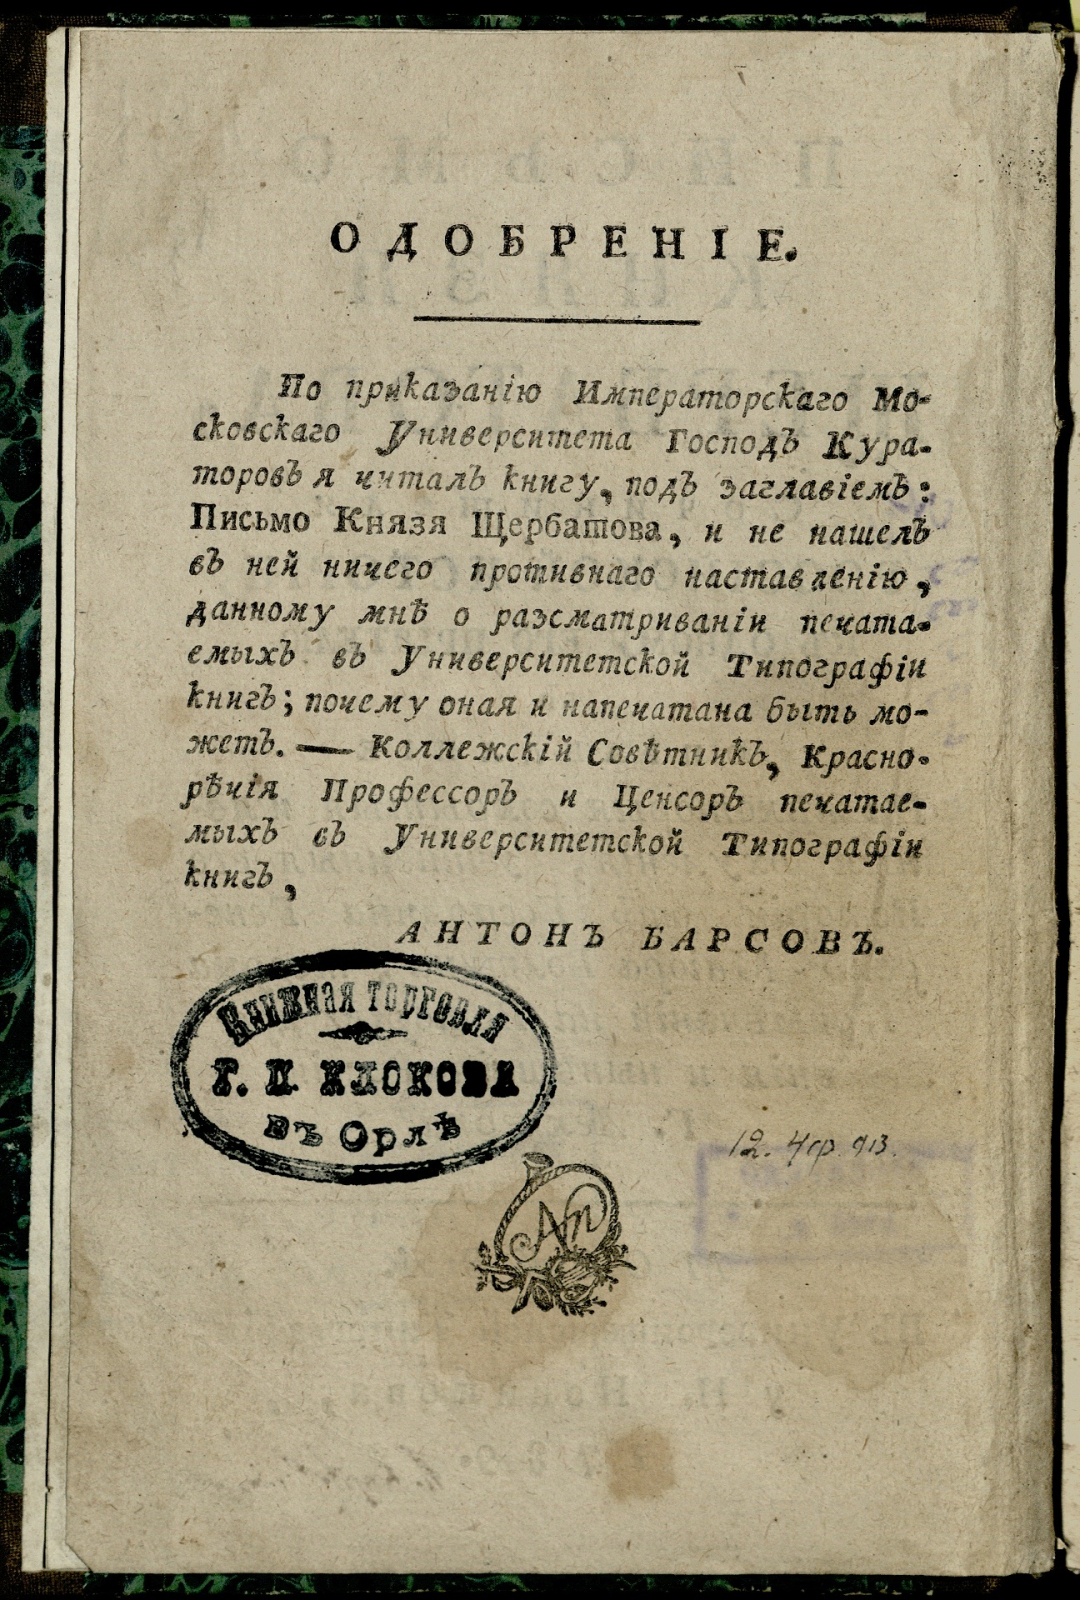 ОДОБРЕНІЕ.
По приказанію Императорскаго Мо-
сковскаго Университета Господъ Кура-
торовъ я читалъ книгу, подъ заглавіемъ:
Письмо Князя Щербатова, и не нашелъ
въ ней ничего противнаго наставленію,
данному мнѣ о разсматриваніи печата-
емыхъ въ Университетской Типографіи
книгъ; почему оная и напечатана быть мо-
жетъ. — Коллежскій Совѣтникъ, Красно-
рѣчія Профессоръ и Ценсоръ печатае-
мыхъ въ Университетской Типографіи
книгъ,
АНТОНЪ БАРСОВЪ.
Книжная торговля
Г. П. КЛОКОВА
въ Орлѣ
12.
АП